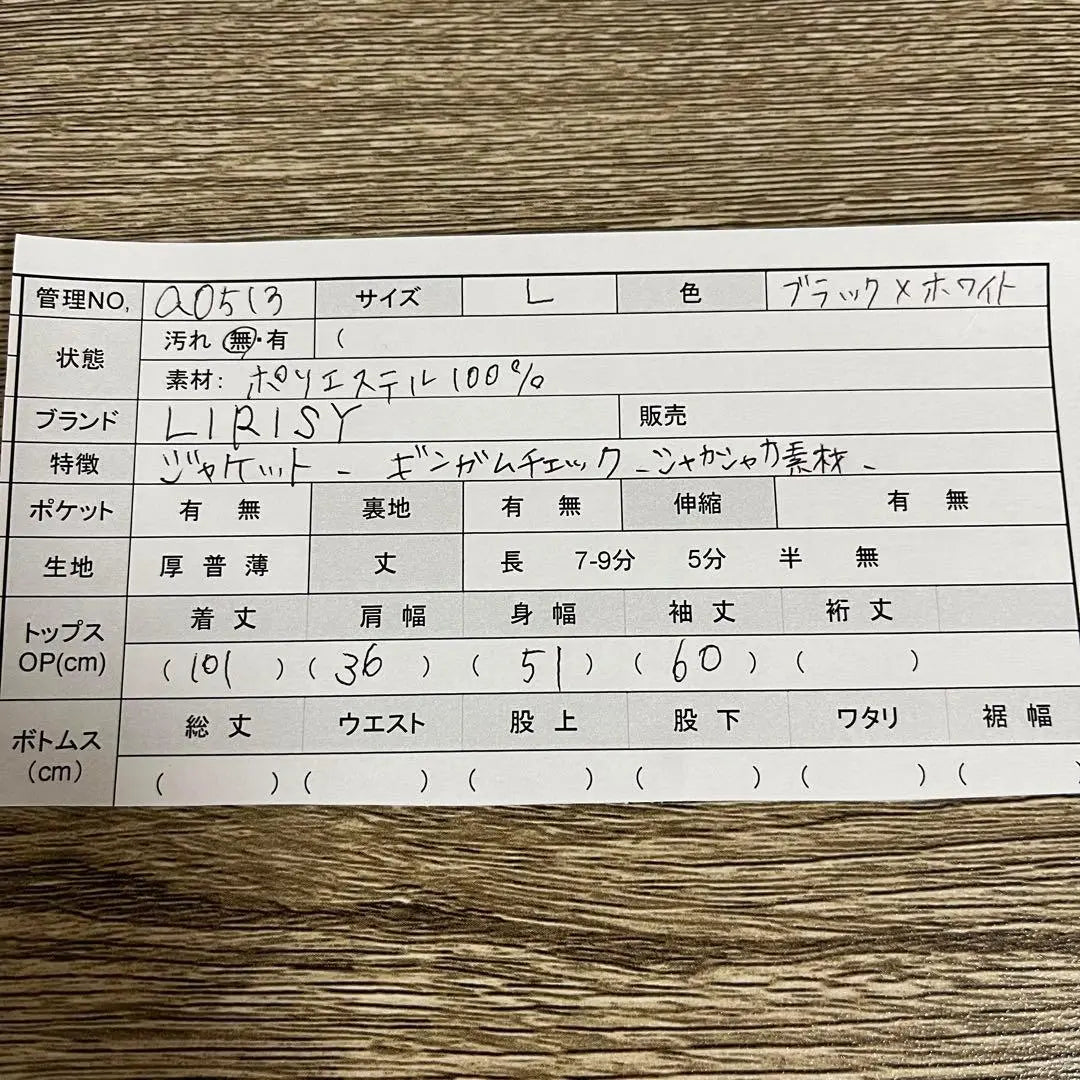 管理NO, a0513 サイズ L 色 ブラック×ホワイト
状態 汚れ 無・有 (
素材: ポリエステル100%
ブランド LIRISY 販売
特徴 ジャケット - ギンガムチェック - シャカシャカ素材 -
ポケット 有 無 裏地 有 無 伸縮 有 無
生地 厚 普 薄 丈 長 7-9分 5分 半 無
トップス OP(cm) 着丈 肩幅 身幅 袖丈 裄丈
(101) (36) (51) (60) ( )
ボトムス (cm) 総丈 ウエスト 股上 股下 ワタリ 裾幅
( ) ( ) ( ) ( ) ( ) ( )